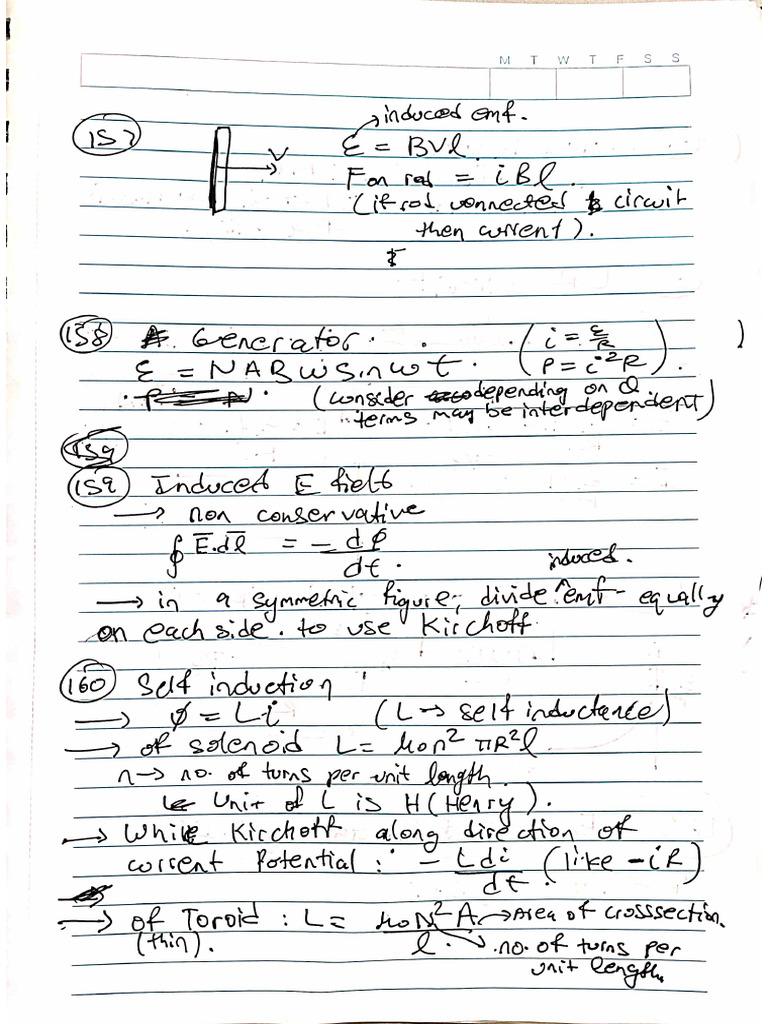 M T W T F S S
induced emf.
157
V
ε = BVl.
F on rod = iBl.
(if rod connected to circuit
then current).
158 Generator.
(i = ε/R
P = i²R).
ε = NABω sin ωt.
(consider depending on Q
terms may be interdependent)
159
159 Induced E field
→ non conservative
∮ E.dl = - dφ/dt.
induced.
→ in a symmetric figure, divide ^ emf equally
on each side. to use Kirchoff
160 Self induction
→ φ = Li (L → self inductance)
→ of solenoid L = μ0n² πR²l
n → no. of turns per unit length
Unit of L is H (Henry).
→ While Kirchoff along direction of
current Potential : - Ldi/dt. (like -iR)
→ of Toroid : L = μ0N²A/l. → Area of crosssection.
(thin).
→ no. of turns per
unit length.